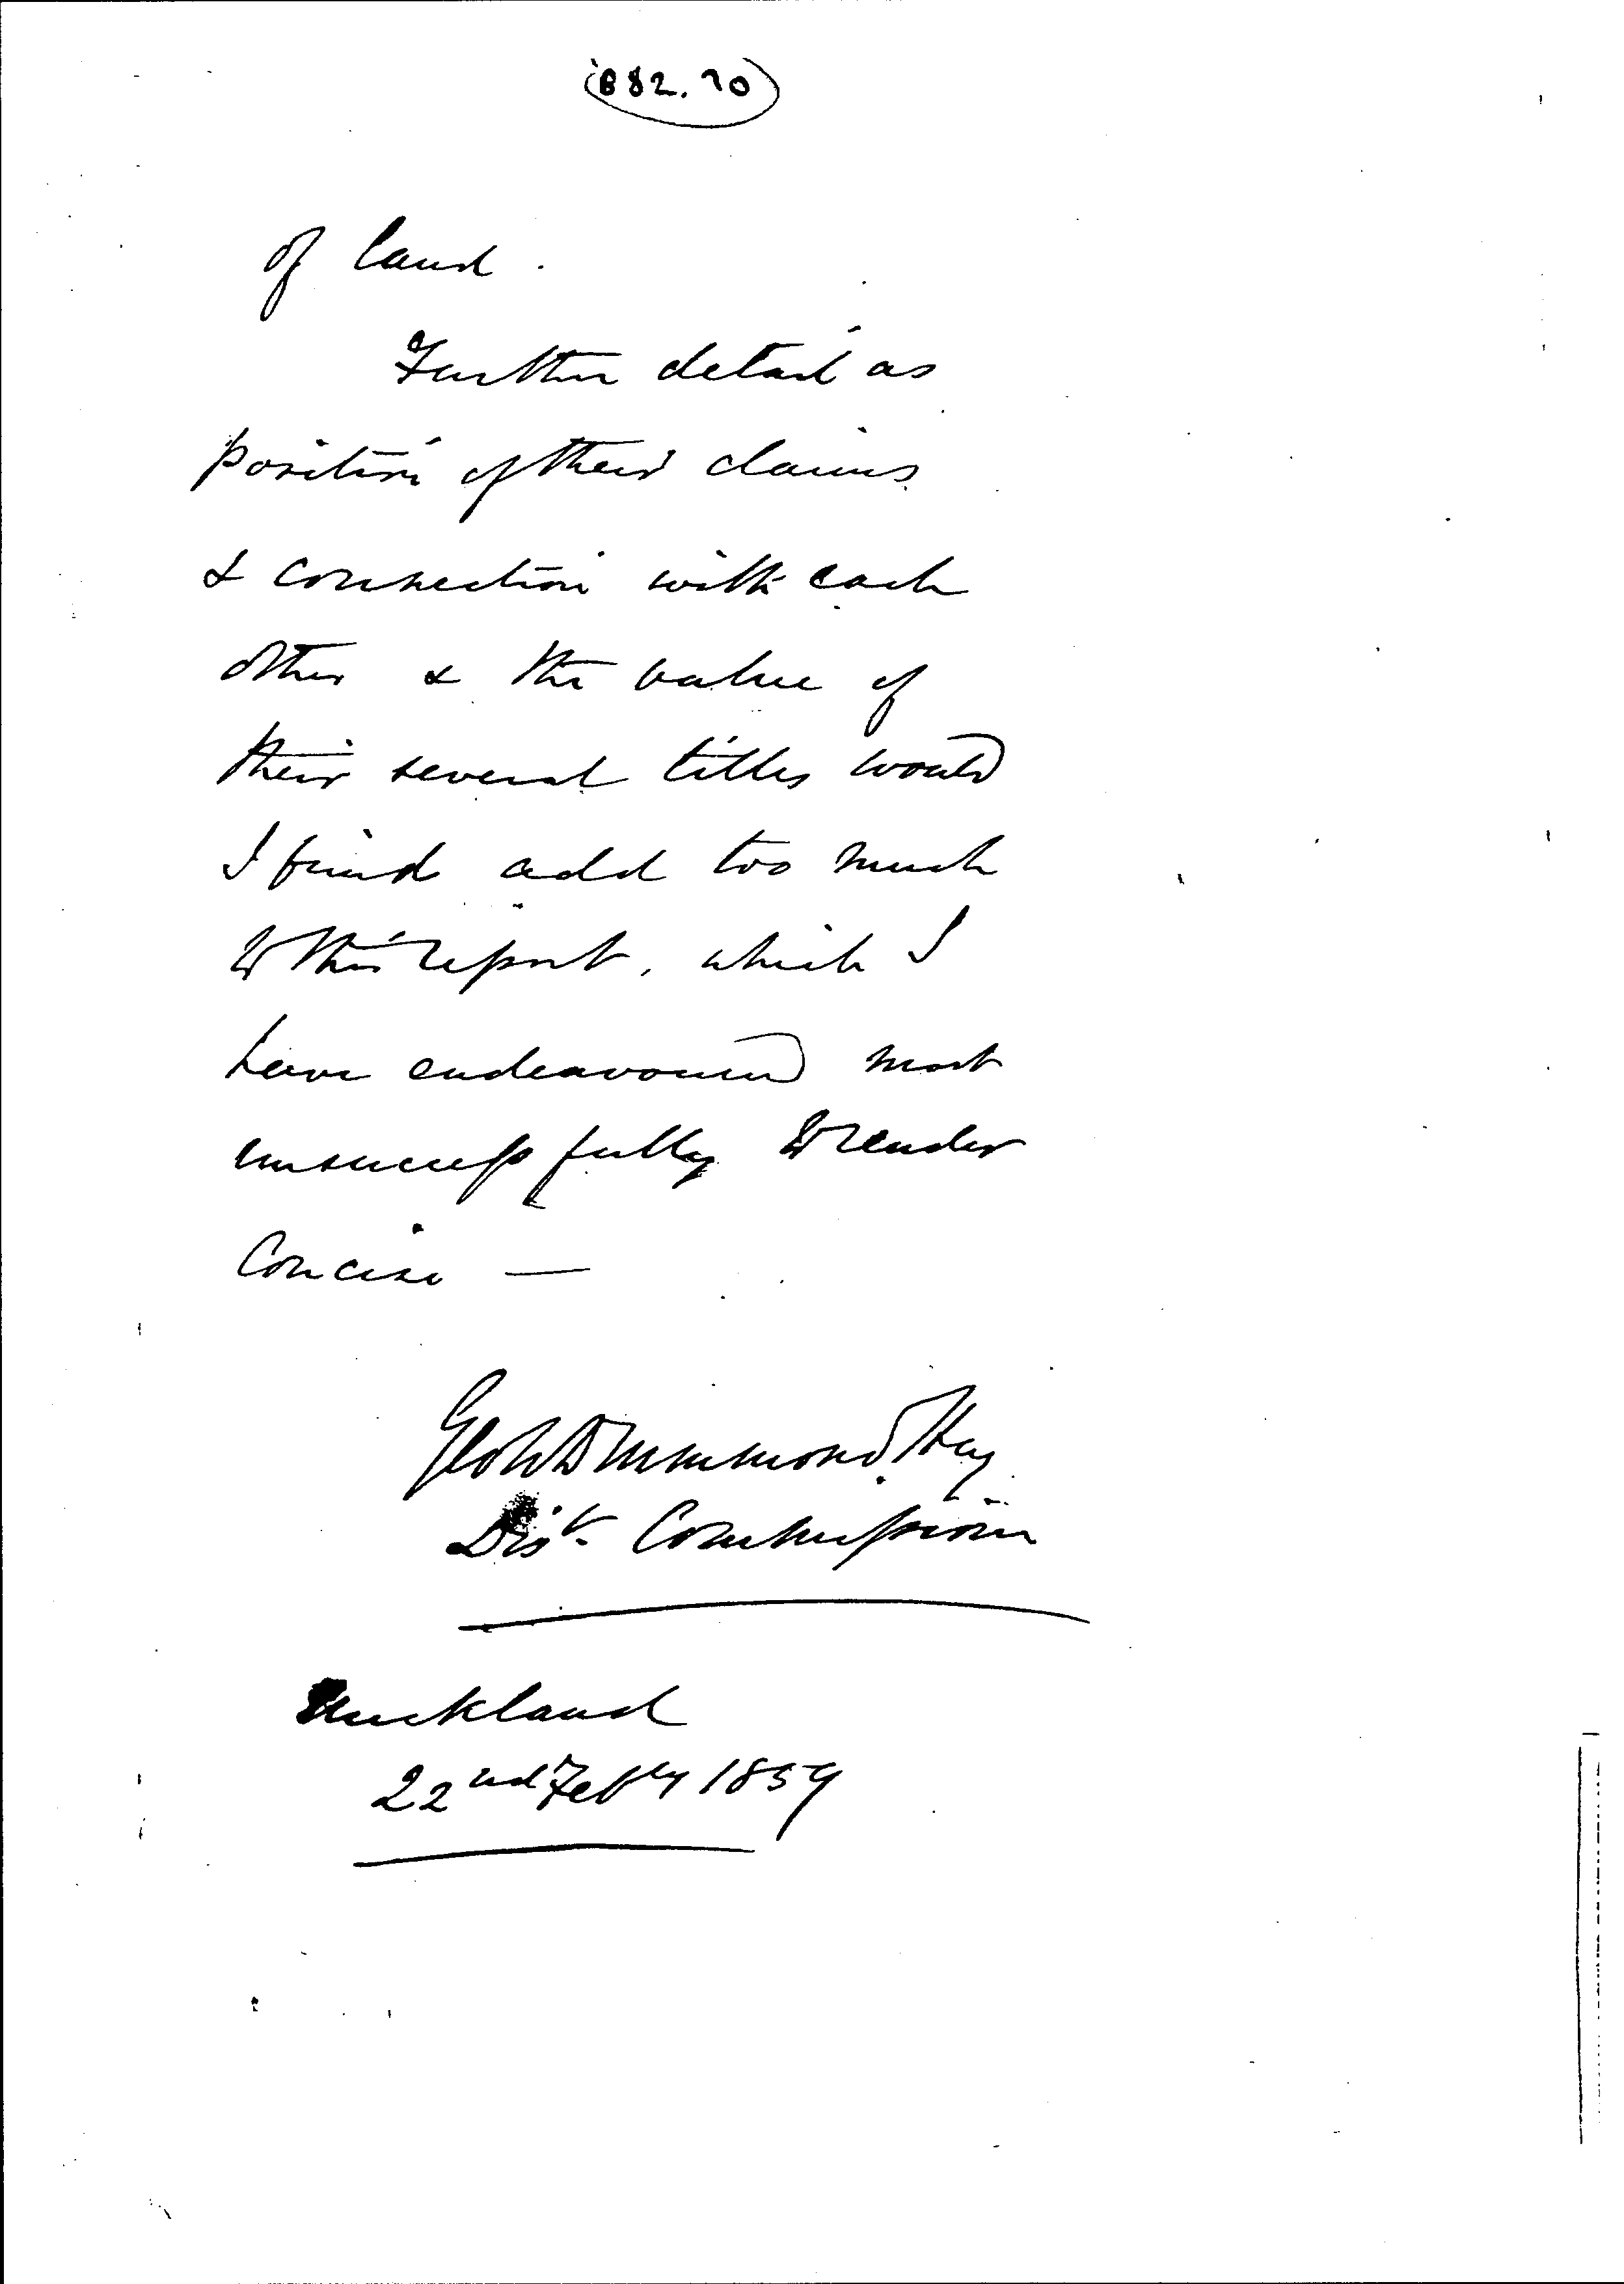 B82.70
of land.
Further detail as
position of their claims
& connection with each
other & the value of
their several titles would
I find add too much
to this report, which I
have endeavoured most
unsuccessfully to render
Concise —
Geo W Drummond Hay
Dist. Commissioner
Auckland
22nd Feby 1859